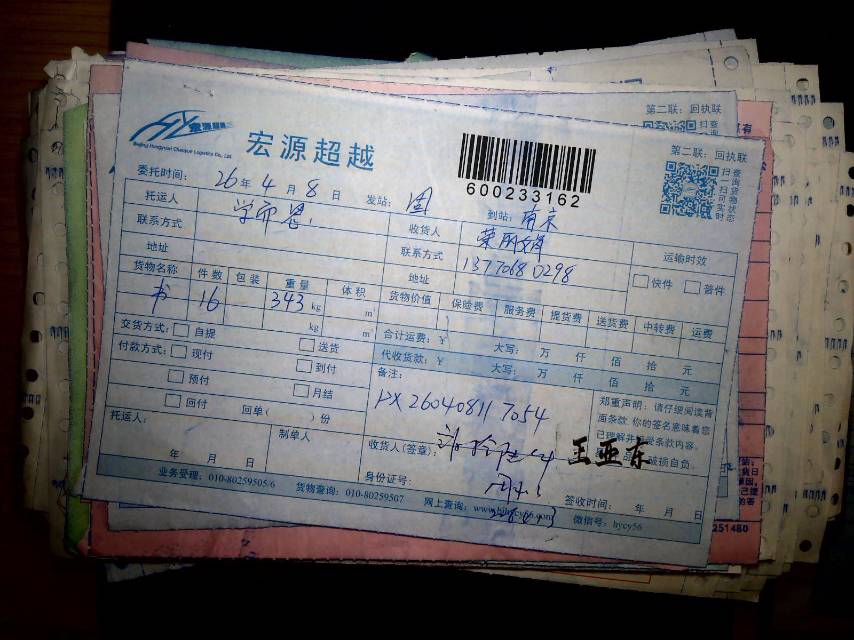 第二联：回执联
宏源超越
Beijing Hongyuan Chaoyue Logistics Co., Ltd
宏源超越
600233162
第二联：回执联
扫一扫
查询货物
可实时状态
委托时间：26年4月8日 发站： 到站：南京
托运人 学而思 收货人
联系方式 联系方式 13770680298
地址 地址
运输时效
快件 普件
货物名称 件数 包装 重量 体积 货物价值 保险费 服务费 提货费 送货费 中转费 运费
书 16 343 kg m³
kg m³
合计运费：¥ 大写： 万 仟 佰 拾 元
交货方式： 自提 送货
代收货款：¥ 大写： 万 仟 佰 拾 元
付款方式： 现付 到付
预付 月结
回付 回单( )份
备注：
PX26040811 7054
郑重声明：请仔细阅读背
面条款 你的签名意味着您
已理解并接受条款内容。
破损自负。
托运人： 制单人 收货人(签章)： 王亚东
年 月 日 身份证号： 签收时间： 年 月 日
业务受理：010-80259505/6 货物查询：010-80259507 网上查询： 微信号：hycy56
251480